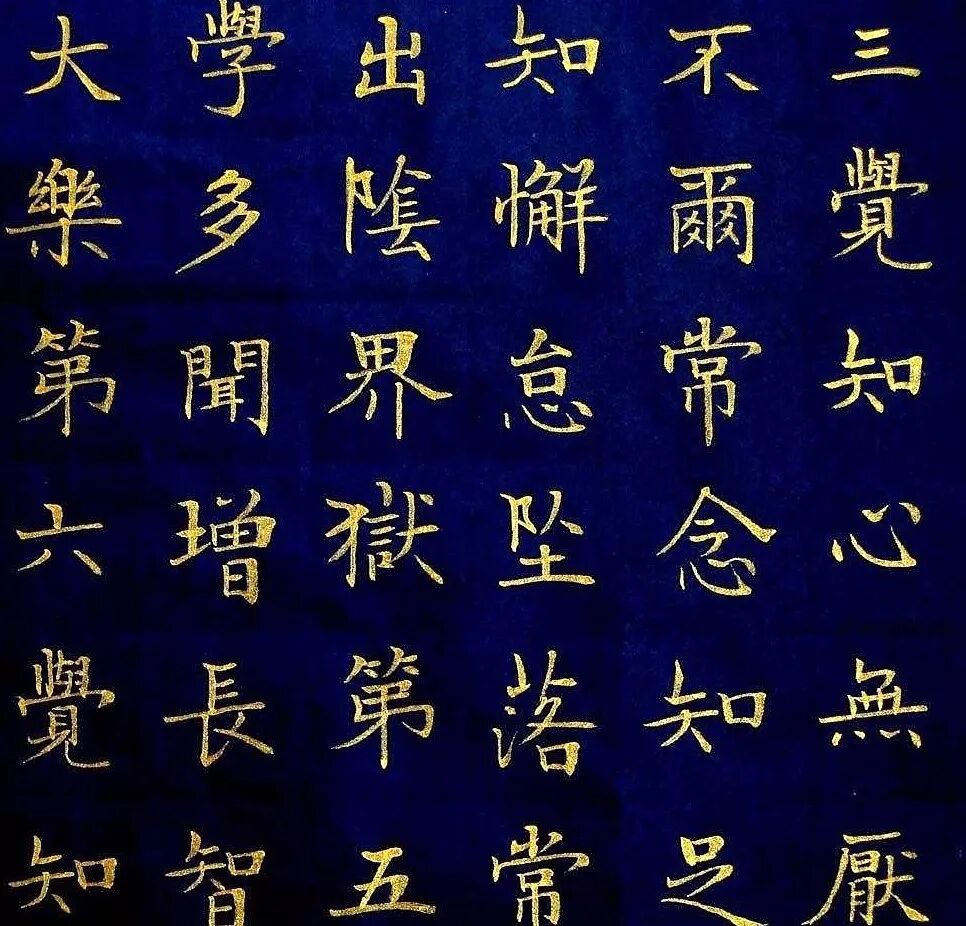 三覺知心無厭
不爾常念知足
知懈怠坠落常
出陰界獄第五
學多聞增長智
大樂第六覺知